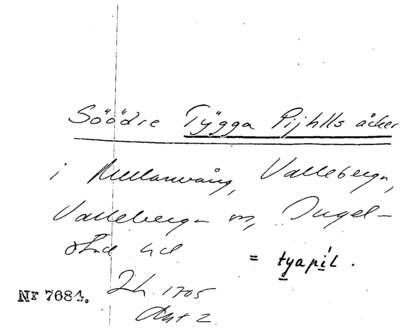 Söödre Tÿgga Pijhlls åcker
i Mellanvång, Valleberga,
Valleberga sn, Ingel-
stad hd
= tyapíl.
Nr 7684. Lh. 1705
Akt 2